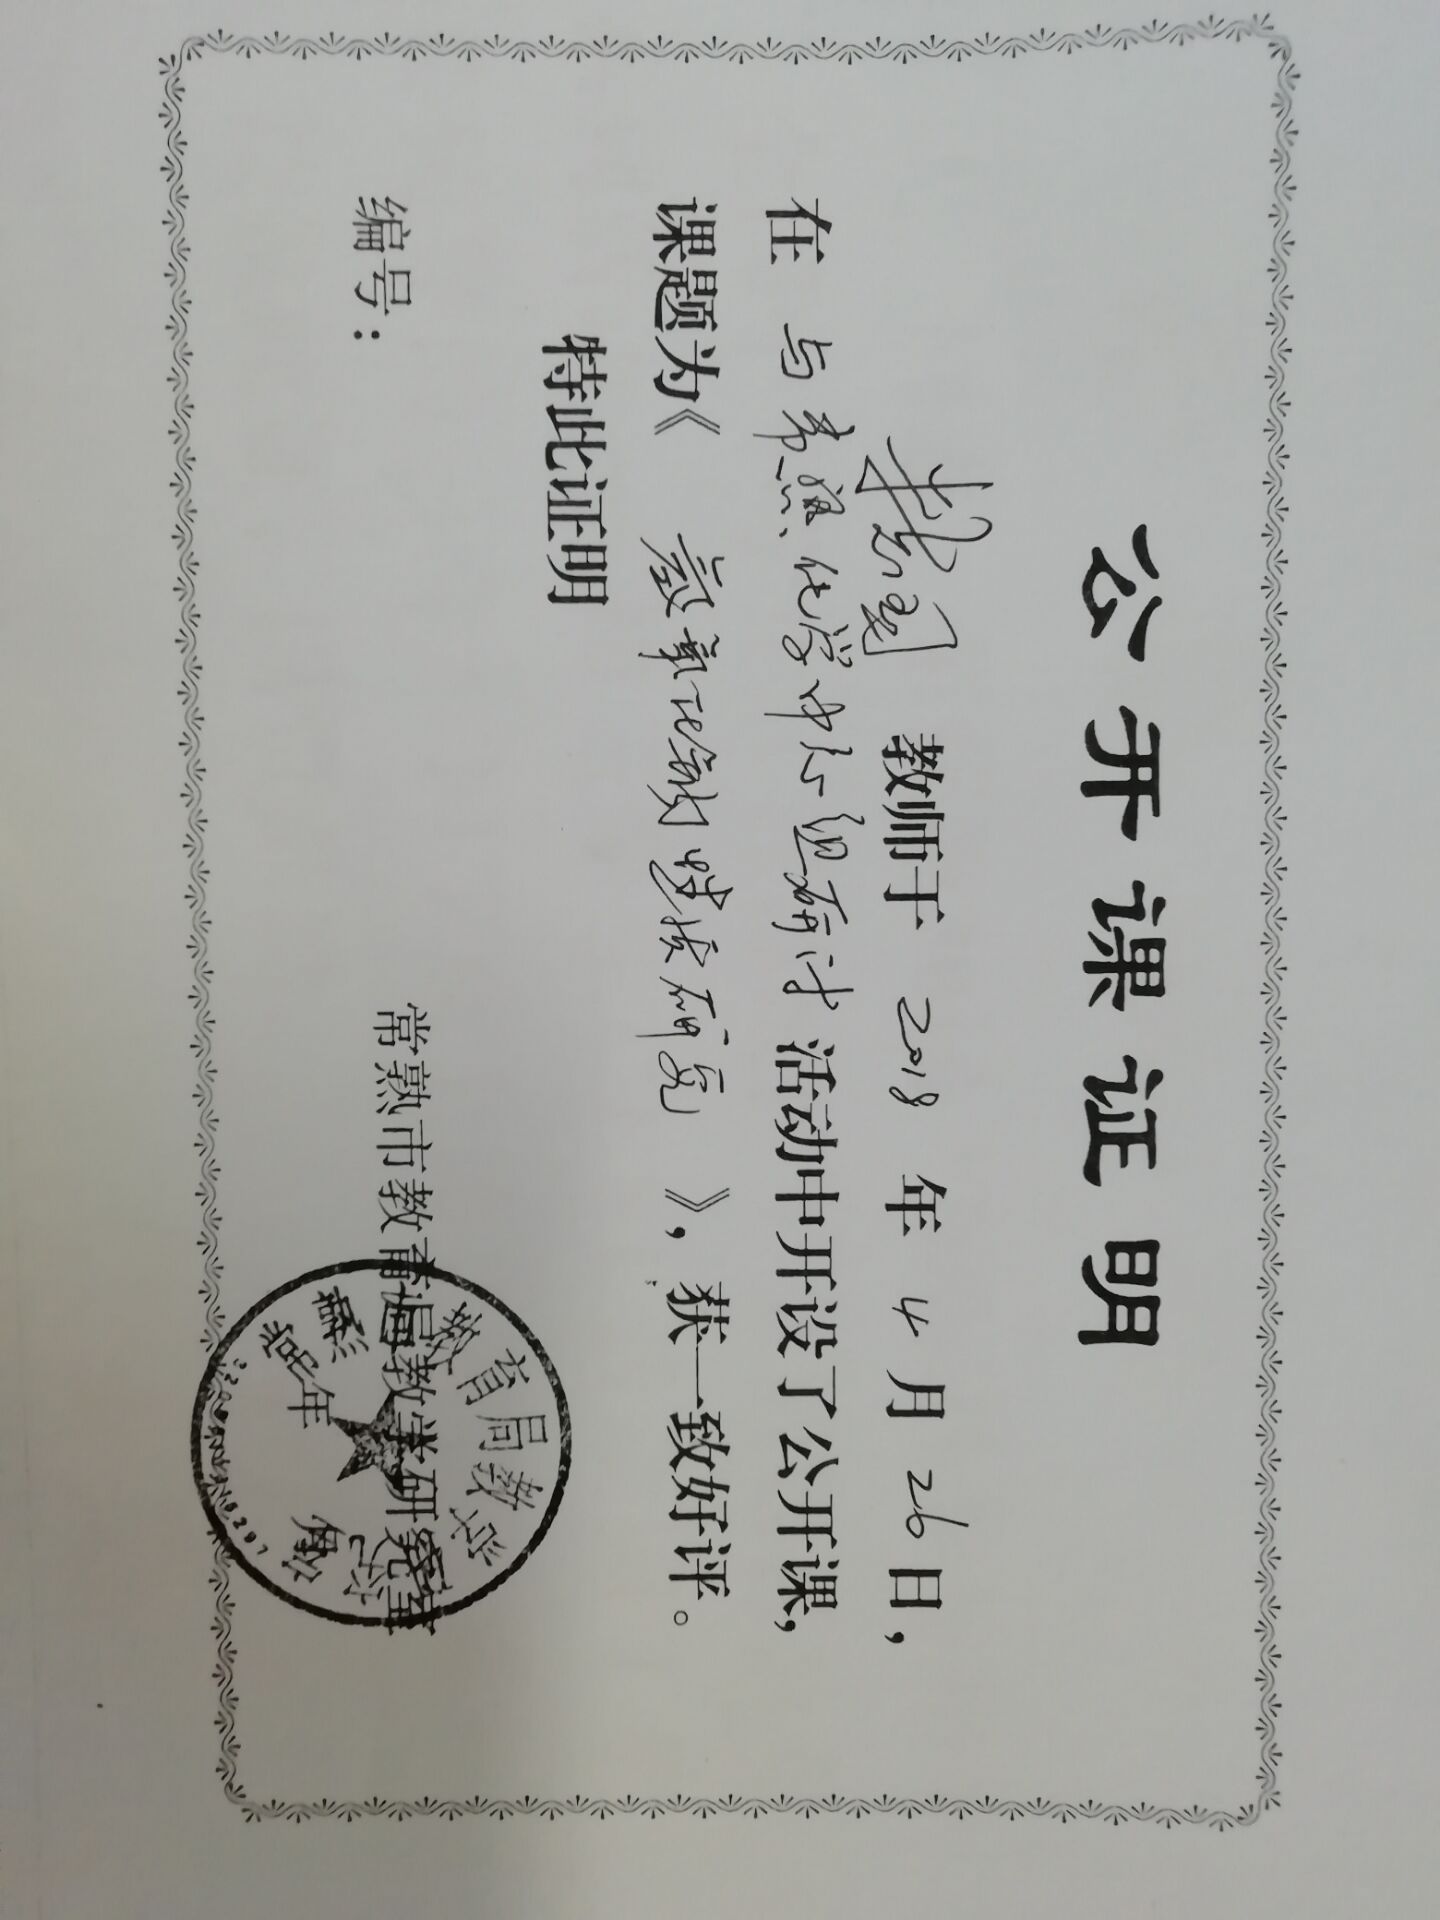 公开课证明
教师于 2018 年 4 月 26 日，
在 与 化学中心组研讨 活动中开设了公开课，
课题为《 性质研究 》，获一致好评。
特此证明
编号：
常熟市教育局教学研究室
教育局教学
年 月